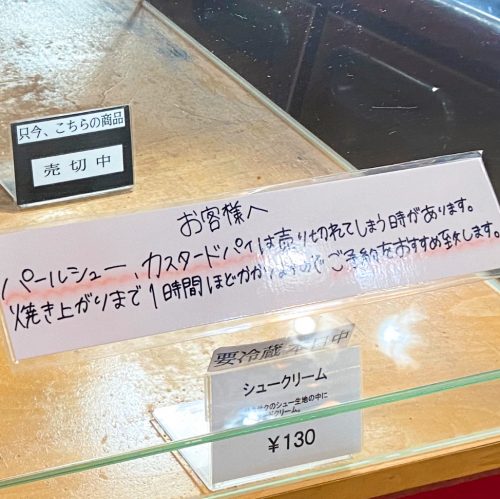 只今、こちらの商品
売切中
お客様へ
パールシュー、カスタードパイは売り切れてしまう時があります。
焼き上がりまで1時間ほどかかりますのでご予約をおすすめ致します。
要冷蔵本日中
シュークリーム
サクのシュー生地の中に
ドクリーム。
¥130